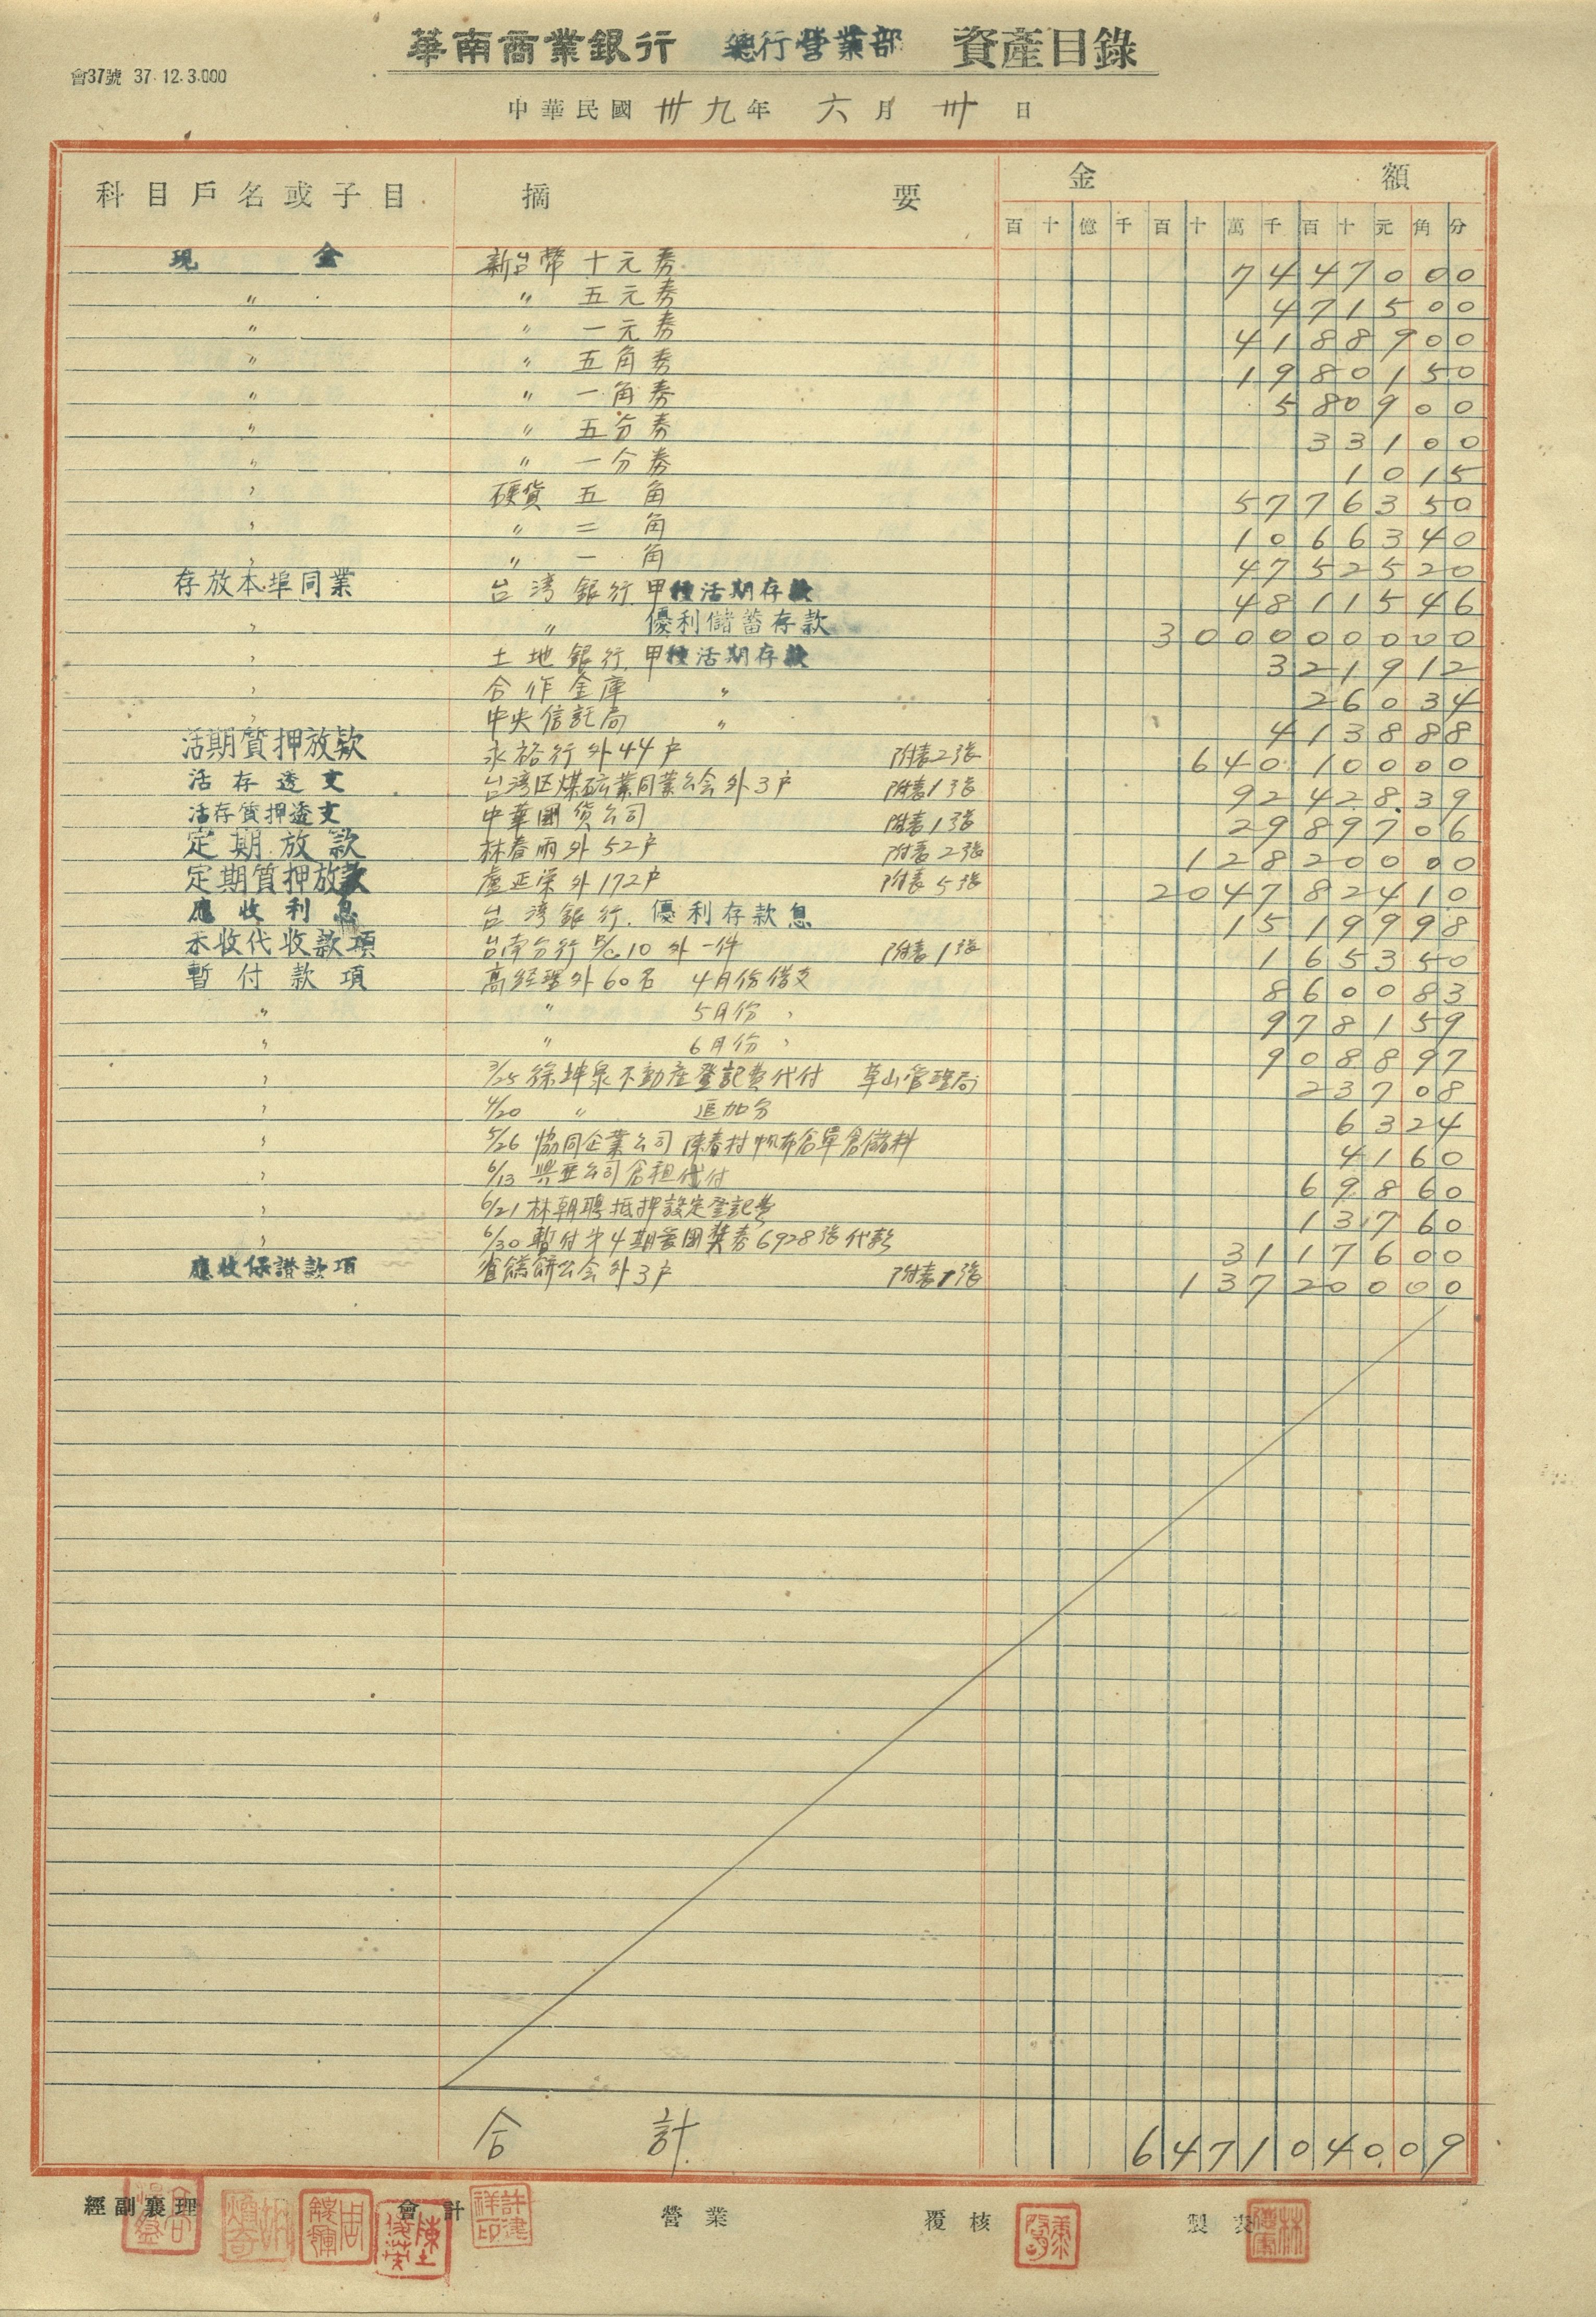 會37號 37.12.3.000
華南商業銀行 總行營業部 資產目錄
中華民國 卅九年 六月 卅日
科目戶名或子目 摘要 金額
百十億千百十萬千百十元角分
現金 新台幣 十元券 7447000
〃 〃 五元券 471500
〃 〃 一元券 4188900
〃 〃 五角券 1980150
〃 〃 一角券 580900
〃 〃 五分券 33100
〃 〃 一分券 1015
〃 硬貨 五角 5776350
〃 〃 二角 1066340
〃 〃 一角 4752520
存放本埠同業 台湾銀行 甲種活期存款 4811546
〃 〃 優利儲蓄存款 300000000
〃 土地銀行 甲種活期存款 321912
〃 合作金庫 〃 26034
〃 中央信託局 〃 413888
活期質押放款 永裕行外44戶 附表2張 64010000
活存透支 台湾区煤矿業同業公会外3戶 附表1張 9242839
活存質押透支 中華國貨公司 附表1張 2989706
定期放款 林春雨外52戶 附表2張 12820000
定期質押放款 盧正榮外172戶 附表5張 204782410
應收利息 台湾銀行 優利存款息 1519998
未收代收款項 台南分行 10外一件 附表1張 165350
暫付款項 高經理外60名 4月份借支 860083
〃 〃 5月份 〃 978159
〃 〃 6月份 〃 908897
〃 3/25 徐坤泉不動產登記費代付 草山管理局 23708
〃 4/20 〃 追加分 6324
〃 5/26 協同企業公司 陳春村帆布倉單倉儲料 4160
〃 6/13 興亜公司倉租代付 69860
〃 6/21 林朝聘抵押設定登記費 13760
〃 6/30 暫付第4期愛國獎券6928張代款 3117600
應收保證款項 省餅公会外3戶 附表1張 13720000
合計 647104009
經副襄理 會計 營業 覆核 製表
許建祥印